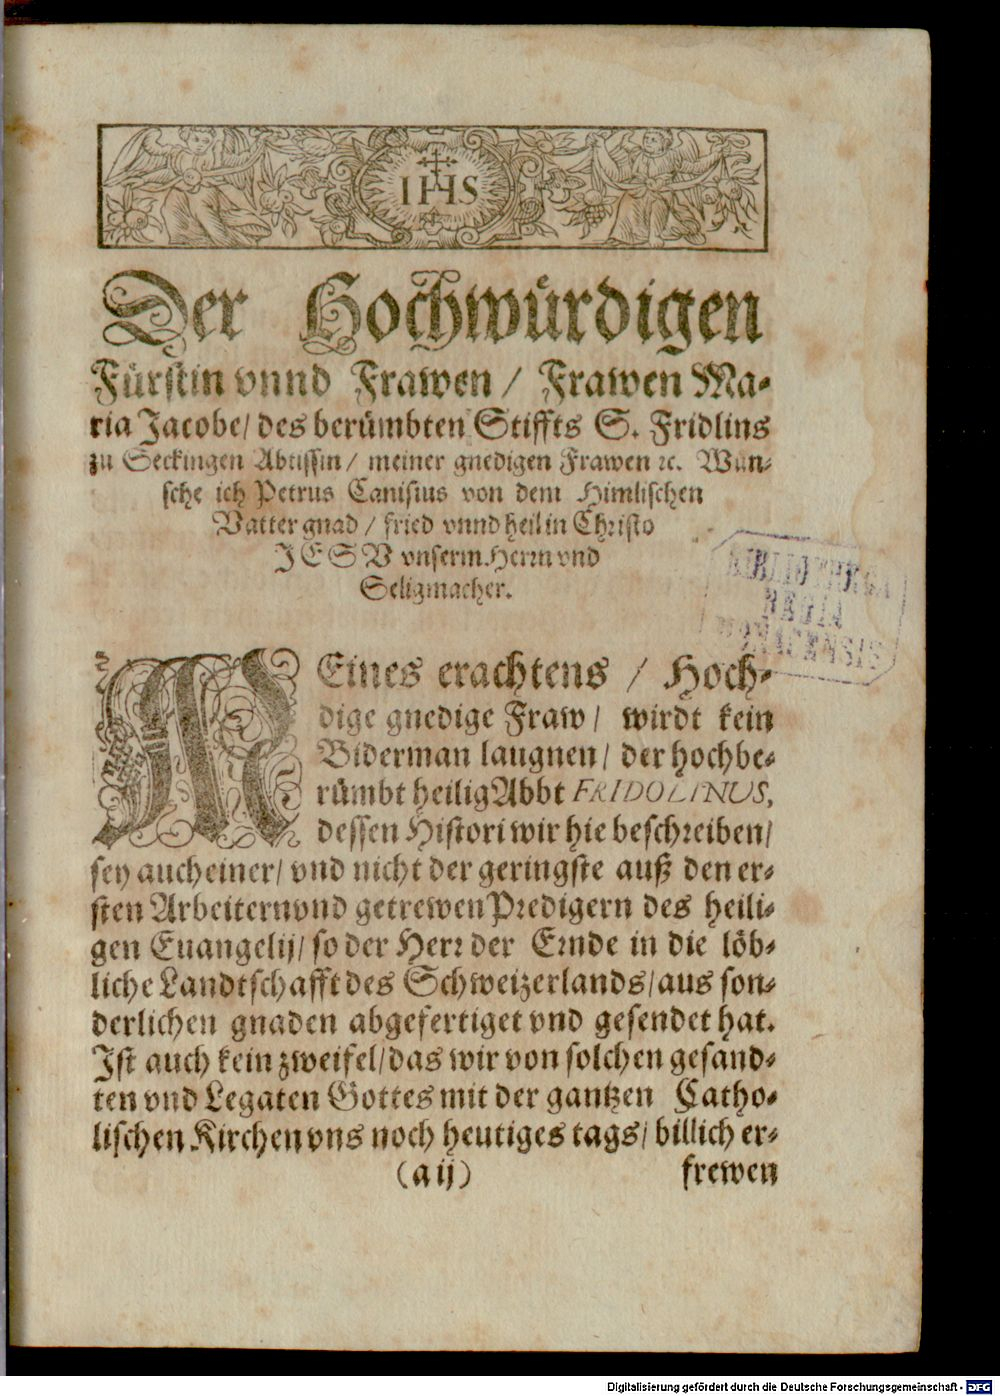 IHS
Der Hochwürdigen
Fürstin vnnd Frawen / Frawen Ma-
ria Jacobe / des berümbten Stiffts S. Fridlins
zu Seckingen Abtissin / meiner gnedigen Frawen ꝛc. Wün-
sche ich Petrus Canisius von dem Himlischen
Vatter gnad / fried vnnd heil in Christo
JESV vnserm Herrn vnd
Seligmacher.
BIBLIOTHECA
REGIA
MONACENSIS
MEines erachtens / Hoch-
dige gnedige Fraw / wirdt kein
Biderman laugnen / der hochbe-
rümbt heilig Abbt FRIDOLINUS,
dessen Histori wir hie beschreiben /
sey auch einer / vnd nicht der geringste auß den er-
sten Arbeitern vnd getrewen Predigern des heili-
gen Euangelij / so der Herr der Ernde in die löb-
liche Landtschafft des Schweizerlands / aus son-
derlichen gnaden abgefertiget vnd gesendet hat.
Ist auch kein zweifel / das wir von solchen gesand-
ten vnd Legaten Gottes mit der gantzen Catho-
lischen Kirchen vns noch heutiges tags / billich er-
(a ij) frewen
Digitalisierung gefördert durch die Deutsche Forschungsgemeinschaft - DFG